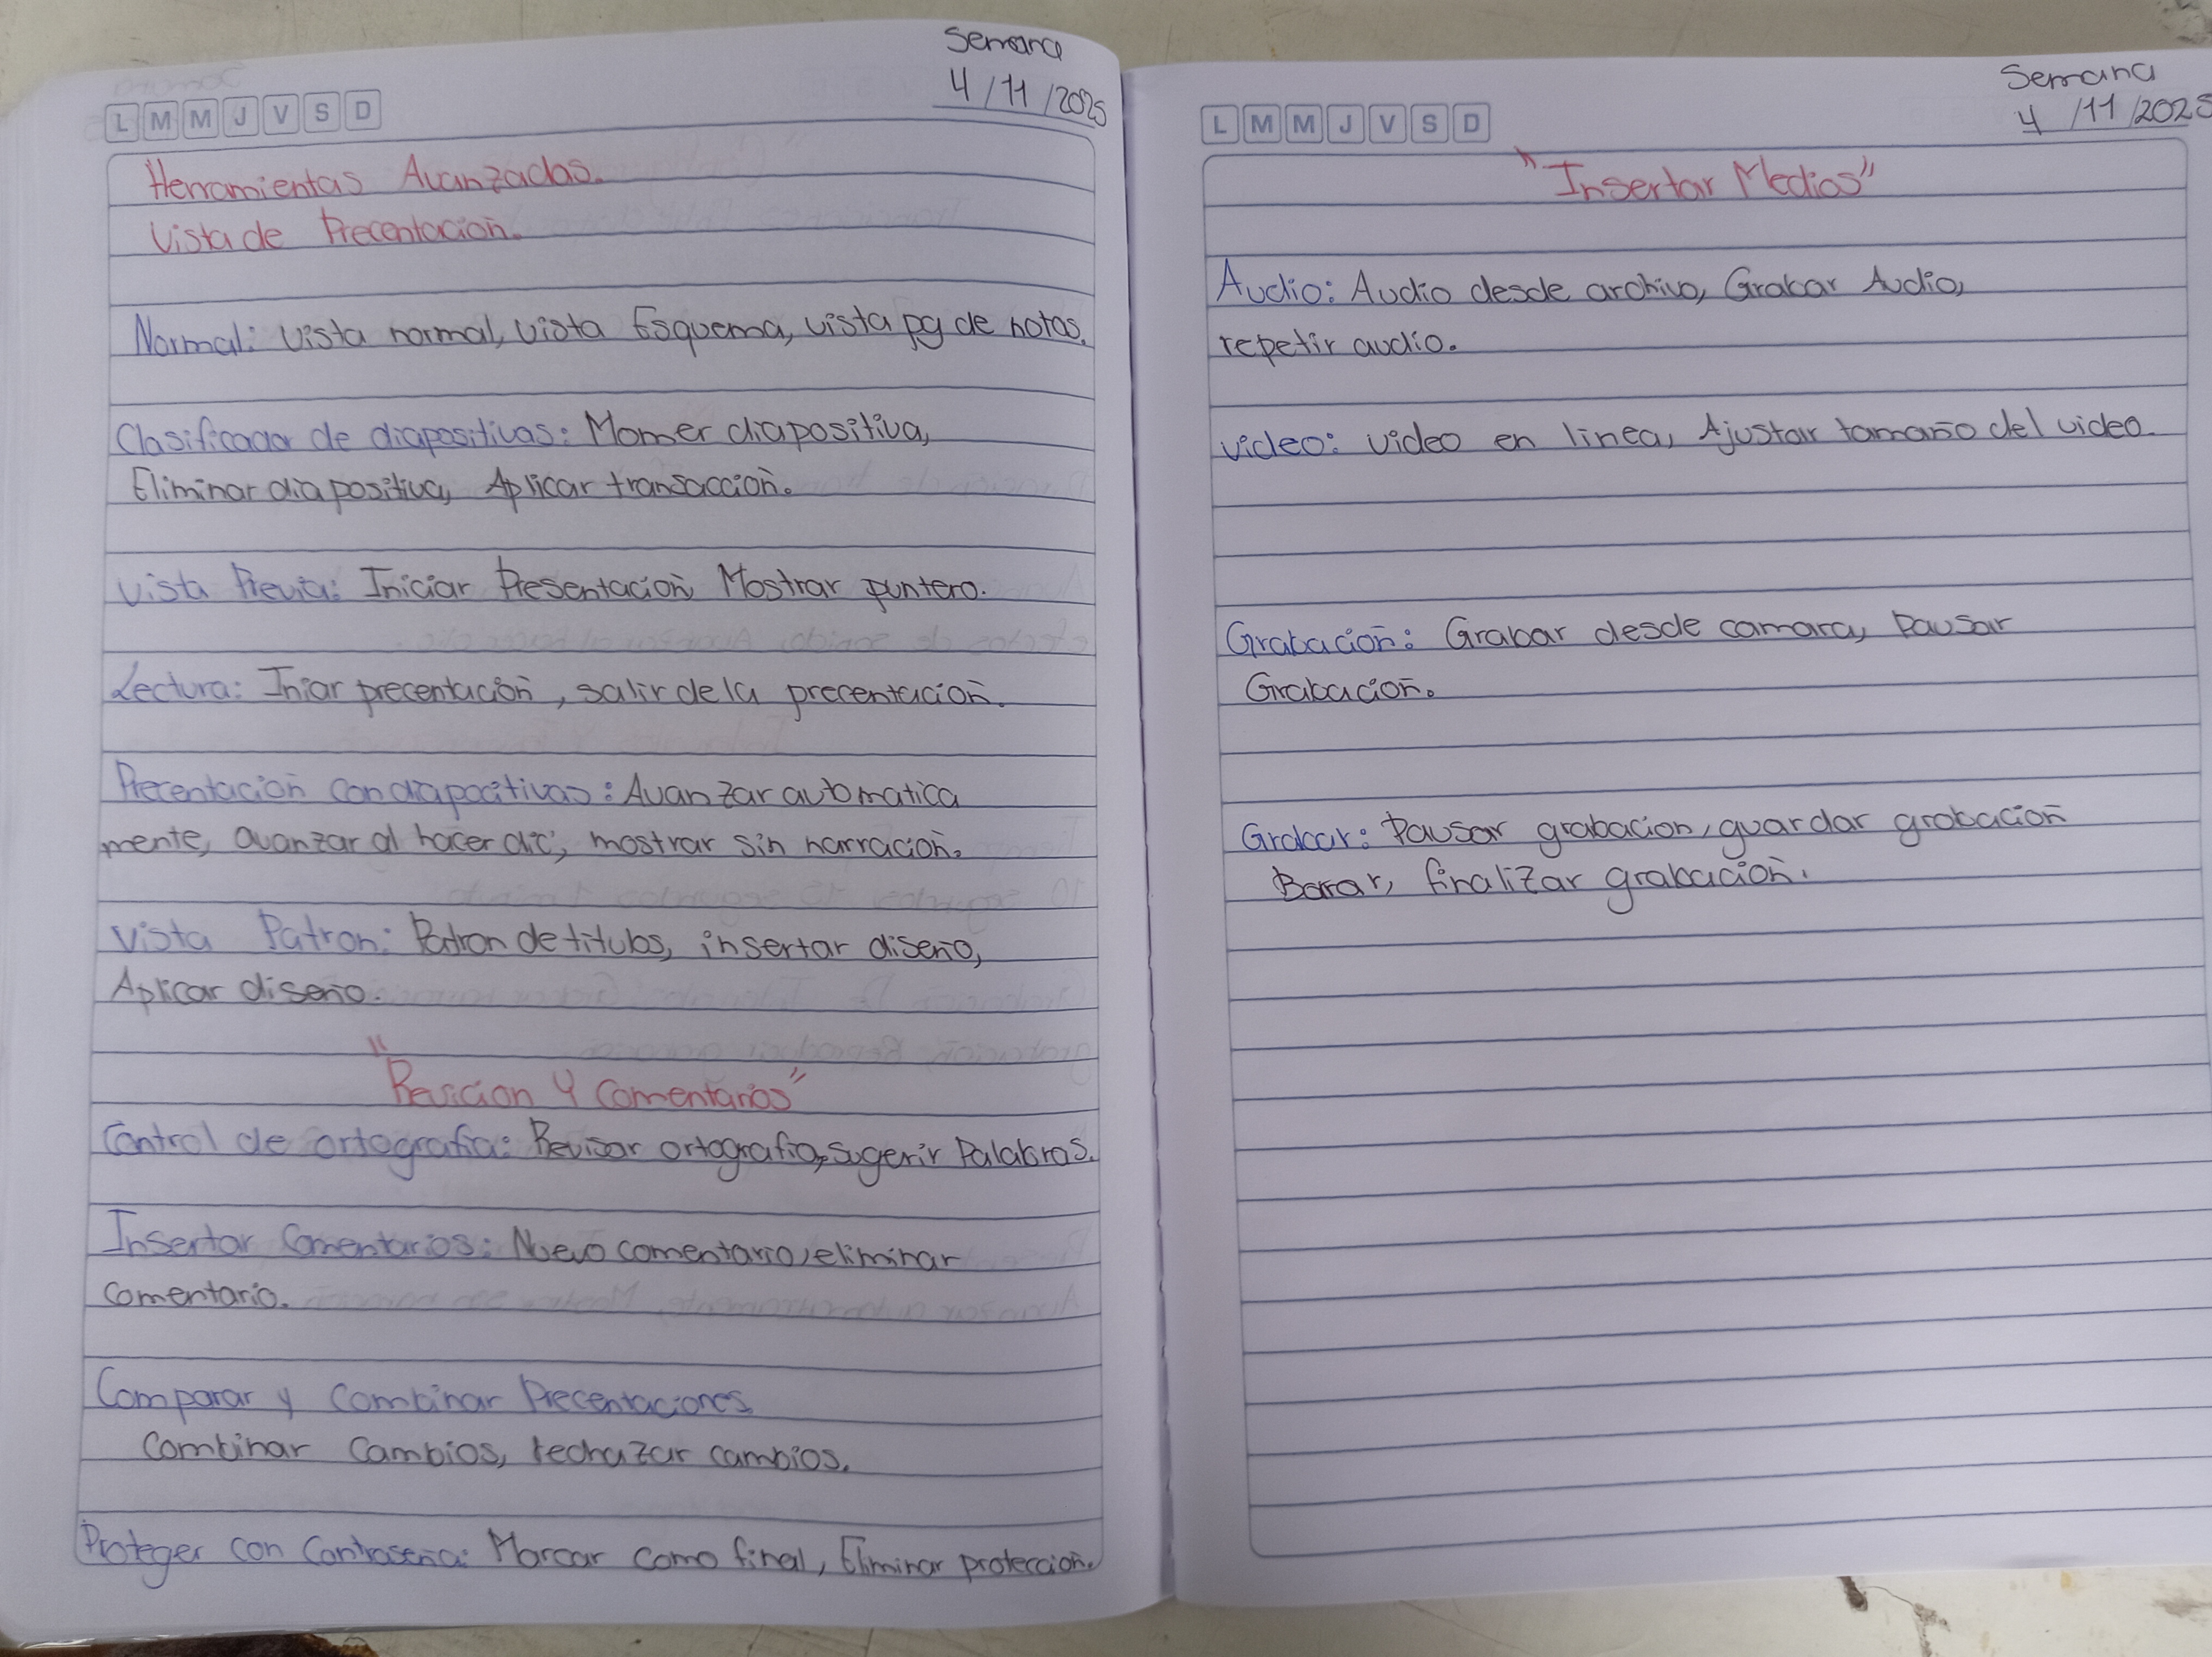 Semana
4/11/2025
L M M J V S D
Herramientas Avanzadas.
Vista de Precentacion.
Normal: Vista normal, Vista Esquema, vista pg de notas.
Clasificador de diapositivas: Momer diapositiva,
Eliminar diapositiva, Aplicar transaccion.
Vista Previa: Iniciar Presentacion, Mostrar puntero.
Lectura: Iniar precentacion, salir de la precentacion.
Precentacion con diapocitivas: Avanzar automatica
mente, avanzar al hacer clic, mostrar sin narracion.
Vista Patron: Patron de titulos, insertar diseño,
Aplicar diseño.
"Revicion Y Comentarios"
Control de ortografia: Revisar ortografia, sugerir Palabras.
Insertar Comentarios: Nuevo comentario, eliminar
comentario.
Comparar y Combinar Precentaciones
Combinar Cambios, rechazar cambios.
Proteger con Contraseña: Marcar como final, Eliminar proteccion.
Semana
4/11/2025
L M M J V S D
"Insertar Medios"
Audio: Audio desde archivo, Grabar Audio,
repetir audio.
video: video en linea, Ajustar tamaño del video.
Grabacion: Grabar desde camara, Pausar
Grabacion.
Grabar: Pausar grabacion, guardar grabacion
Borar, finalizar grabacion.